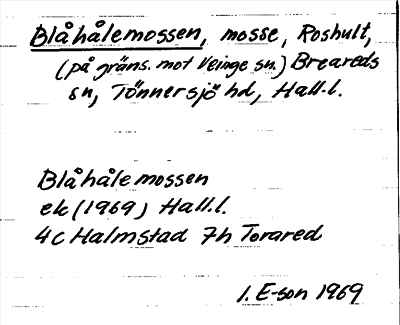 Blåhålemossen, mosse, Roshult,
(på gräns. mot Veinge sn.) Breareds
sn, Tönnersjö hd, Hall.l.
Blåhålemossen
ek (1969) Hall.l.
4c Halmstad 7h Torared
I. E-son 1969